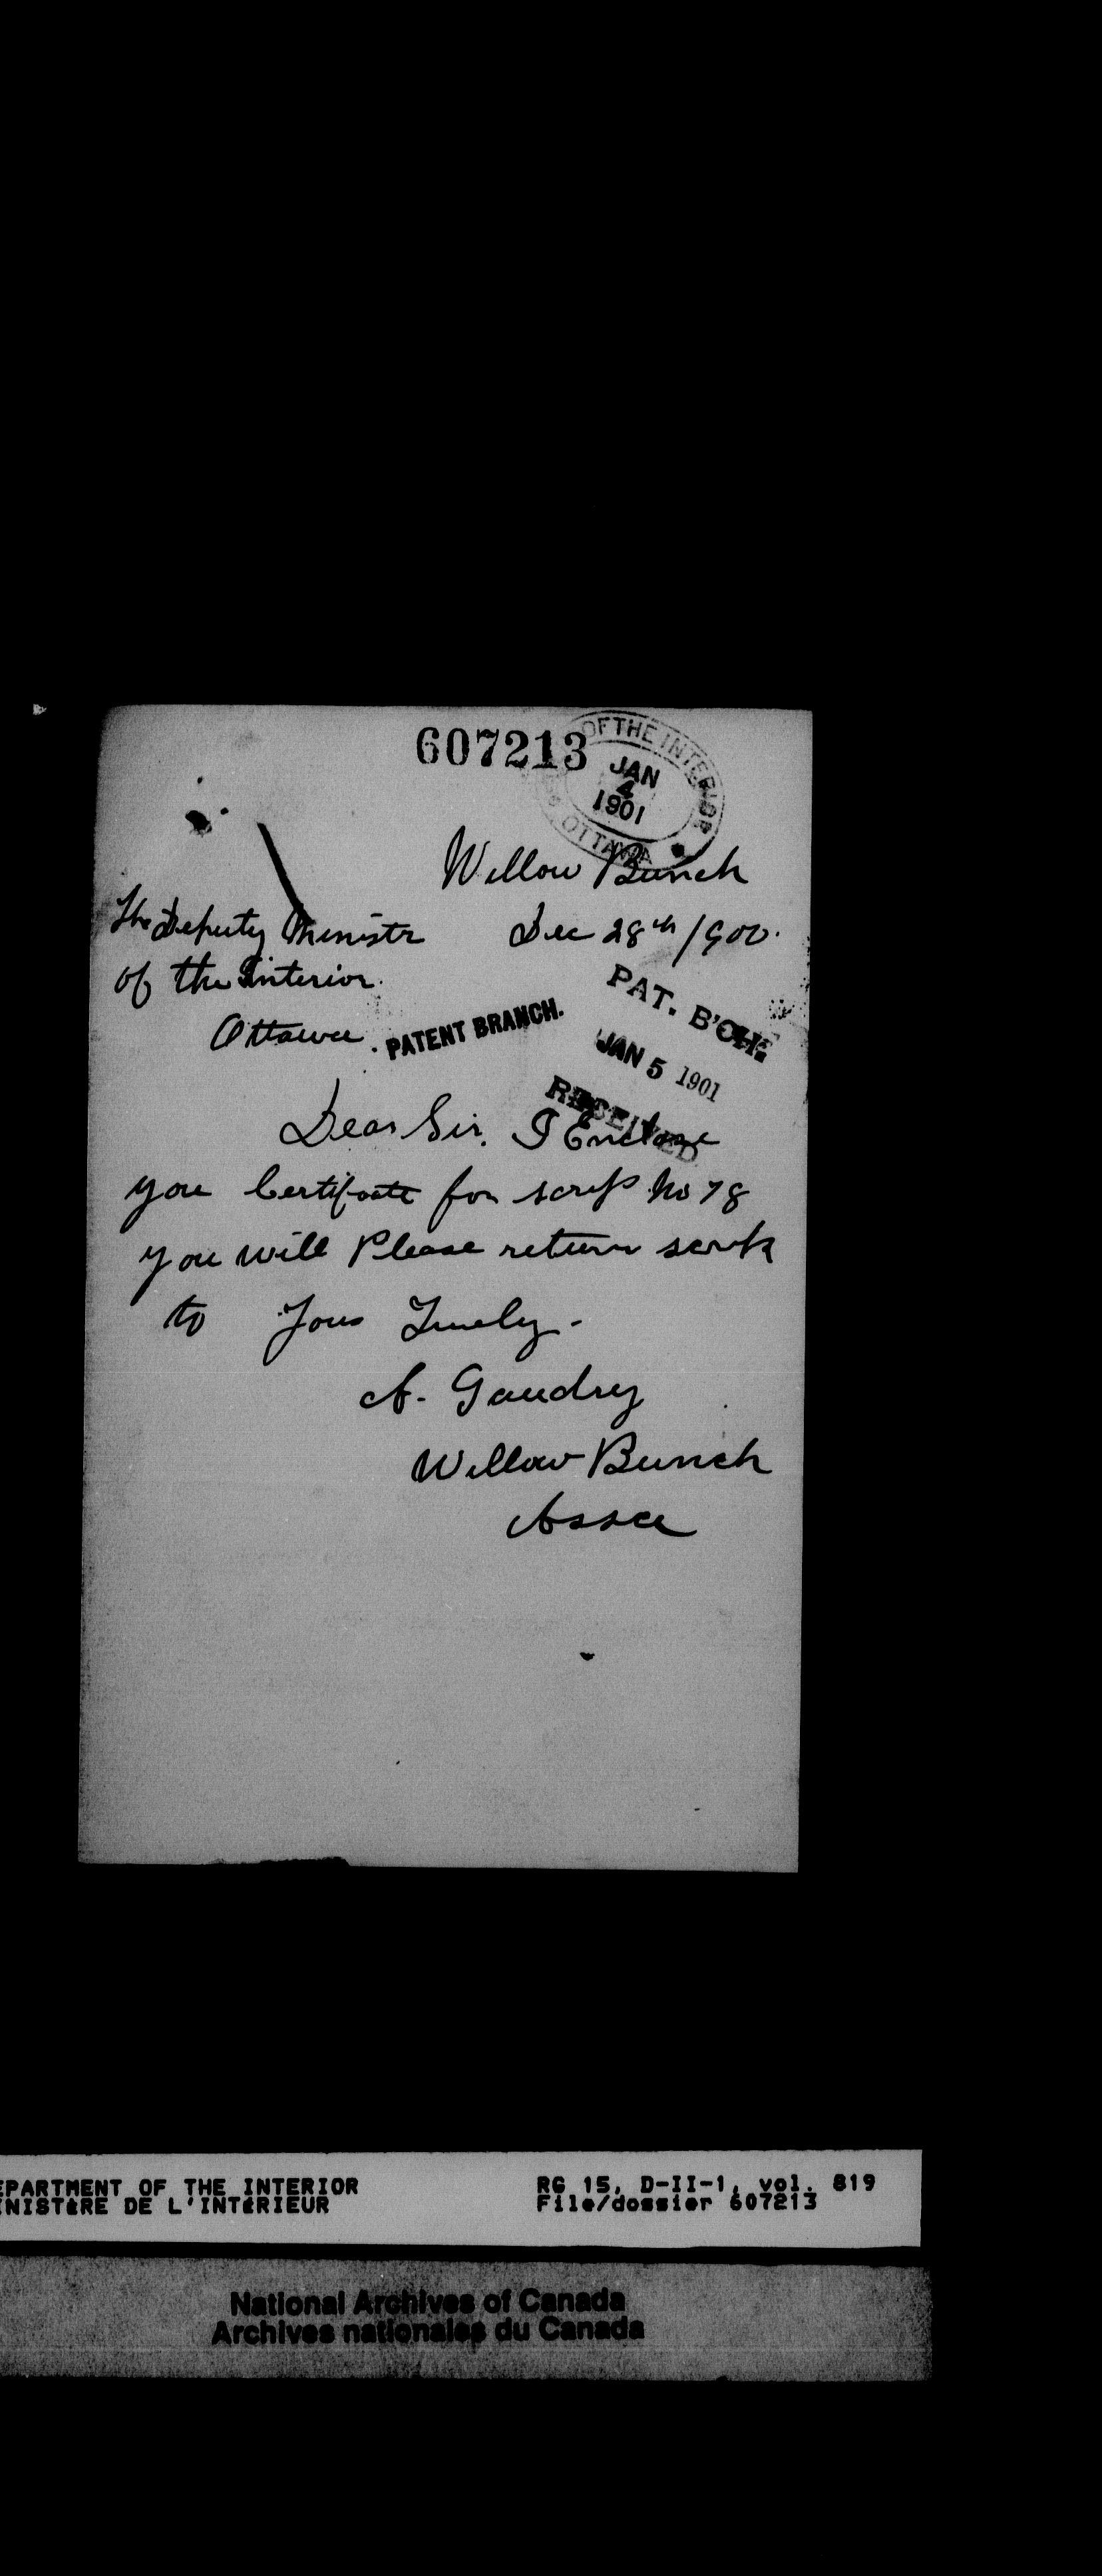 607213
OF THE INTERIOR
JAN
4
1901
OTTAWA
Willow Bunch
The Deputy Ministr Dec 28th /900.
of the Interior.
Ottawa.
PATENT BRANCH.
PAT. B'CH.
JAN 5 1901
RECEIVED
Dear Sir. I Enclose
you Certificate for scrip No 78
you will Please return
to Yours Truely.
A. Gaudry
Willow Bunch
Assa
EPARTMENT OF THE INTERIOR
INISTÈRE DE L'INTÉRIEUR
RG 15, D-II-1, vol. 819
File/dossier 607213
National Archives of Canada
Archives nationales du Canada